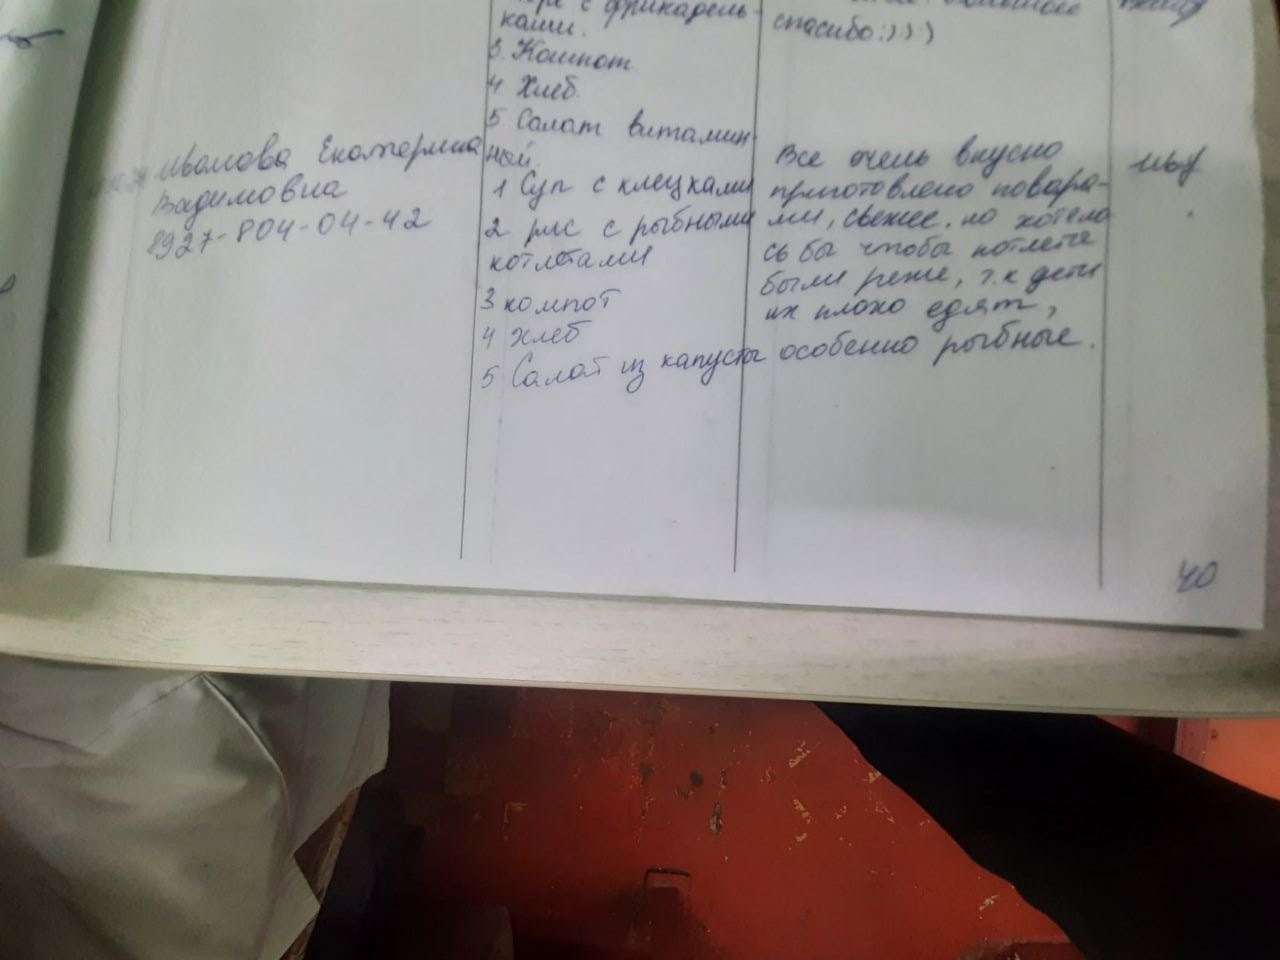 с фрикадель-
ками.
спасибо:)))
3. Компот
4 Хлеб
5 Салат витамин
ной.
Иванова Екатерина
Вадимовна
8927-804-04-42
1 Суп с клецками
2 рис с рыбными
котлетами
3 компот
4 хлеб
5 Салат из капусты
Все очень вкусно
приготовлено повара-
ми, свежее, но хотело
сь бы чтобы котлеты
были реже, т.к дети
их плохо едят,
особенно рыбные.
40